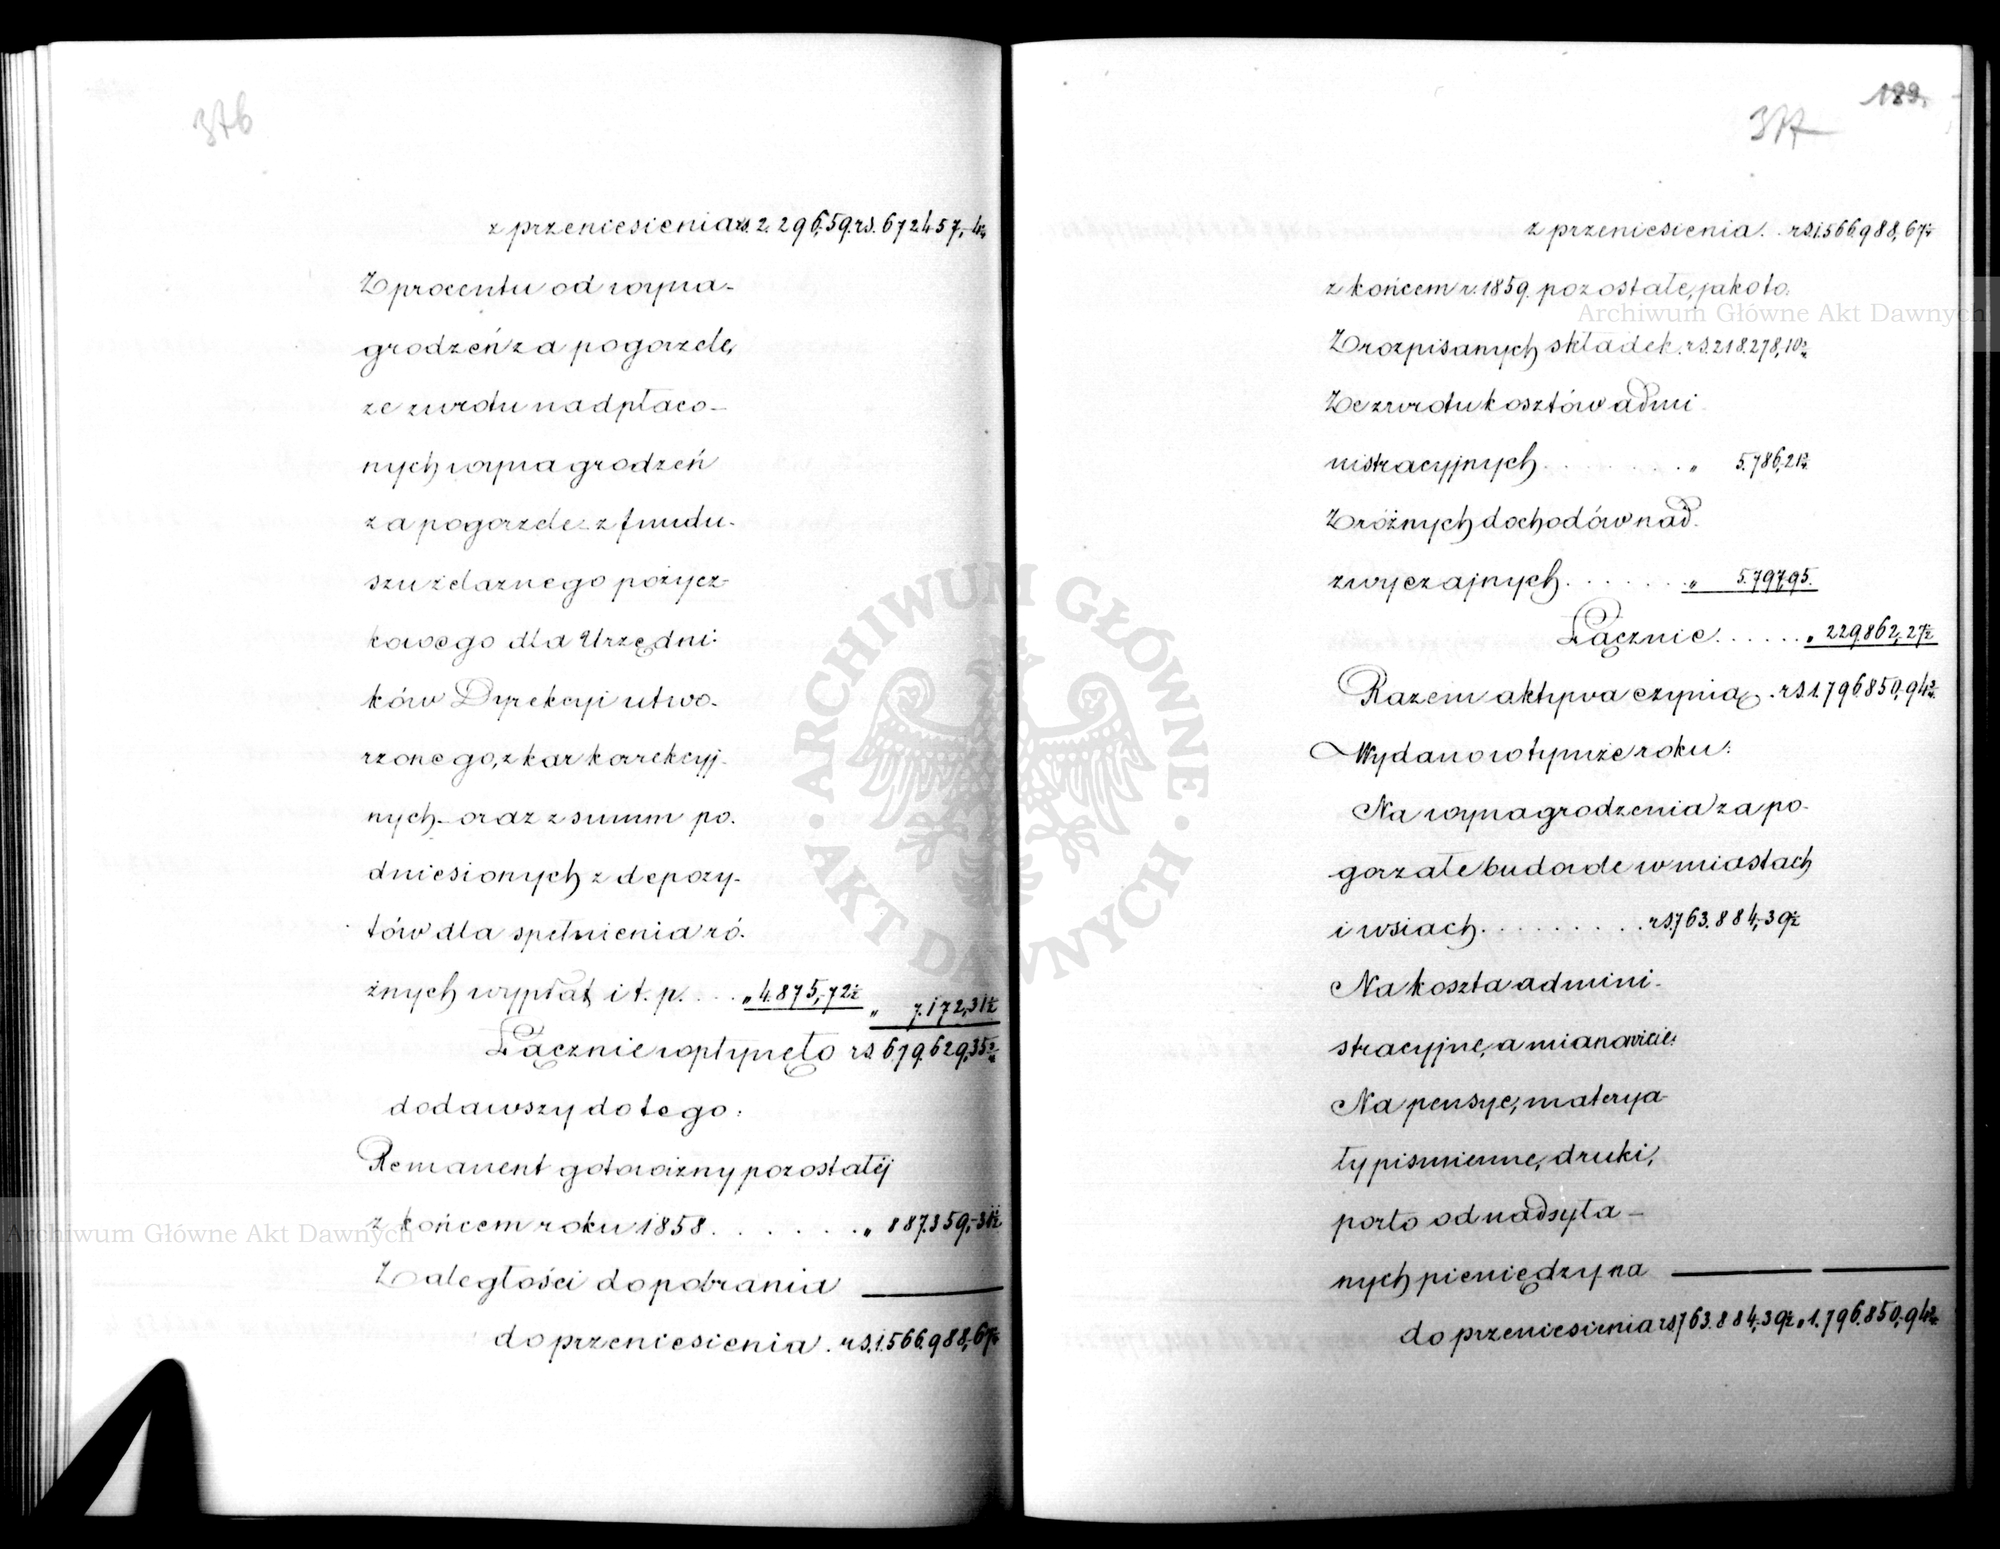 376
z przeniesienia rs. 2.296,59. rs. 672457,4
Z procentu od wyna-
grodzeń za pogorzele,
ze zwrotu nadpłaco-
nych wynagrodzeń
za pogorzele z fundu-
szu żelaznego pożycz-
kowego dla Urzędni-
ków Dyrekcyi utwo-
rzonego, z kar korrekcyj-
nych oraz z summ po-
dniesionych z depozy-
tów dla spełnienia ró-
żnych wypłat i t. p. . . . „ 4.875,72½
„ 7.172,31½
Łącznie wpłynęło rs. 679.629,35
dodawszy do tego:
Remanent gotowizny pozostałéj
z końcem roku 1858 . . . . . . „ 887.359,31½
Zaległości do pobrania
do przeniesienia . rs. 1.566.988,67
189.
377
z przeniesienia . . rs. 1.566.988,67
z końcem r. 1859. pozostałe, jakoto:
Z rozpisanych składek . rs. 218.278,10
Ze zwrotu kosztów admi-
nistracyjnych . . . . . . . „ 5.786,21
Z różnych dochodów nad-
zwyczajnych . . . . . . „ 5.797,95.
Łącznie . . . . . . „ 229.862,27½
Razem aktywa czynią . rs. 1.796.850,94
Wydano w tymże roku:
Na wynagrodzenia za po-
gorzałe budowle w miastach
i wsiach . . . . . . . . . rs. 763.884,39½
Na koszta admini-
stracyjne, a mianowicie:
Na pensye, materya-
ły piśmienne, druki,
porto od nadsyła-
nych pieniędzy na
do przeniesienia rs. 763.884,39½ „ 1.796.850,94
Archiwum Główne Akt Dawnych
Archiwum Główne Akt Dawnych
ARCHIWUM GŁÓWNE · AKT DAWNYCH ·